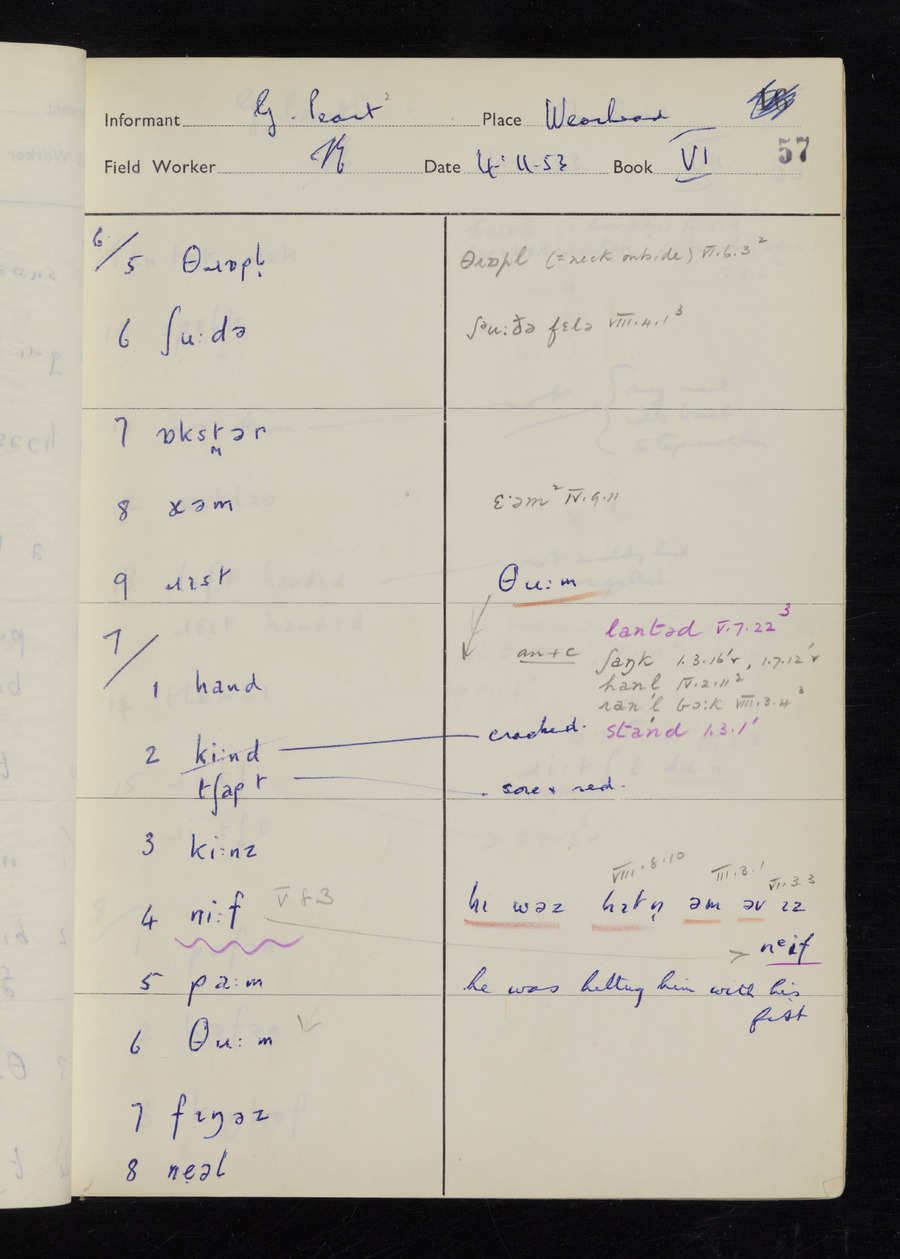 Informant G. Peart² Place Wearhead
Field Worker Date 4.11.53 Book VI 57
6/5 θɹɒpḷ θɹɒpl (= neck outside) VI.6.3²
6 ʃu:də ʃəu:ðə fɛlə VIII.4.1³
7 ɒkstər
8 ɛəm ɛ·əm² IV.9.11
9 ɹɪst θu:m
7/ lantəd V.7.22³
an + c ʃaŋk I.3.16ʹr, I.7.12ʹr
1 hand hanl IV.2.11²
VIII.3.4³
2 ki:nd cracked. stand I.3.1ʹ
tʃapt sore & red.
3 ki:nz
VIII.8.10 III.3.1 VI.3.3
4 ni:f V.8.3 hɪ wəz hɪtn̩ əm əv ɪz
neif
5 pa:m he was hitting him with his
fist
6 θu:m
7 fɪŋəz
8 nẹəl